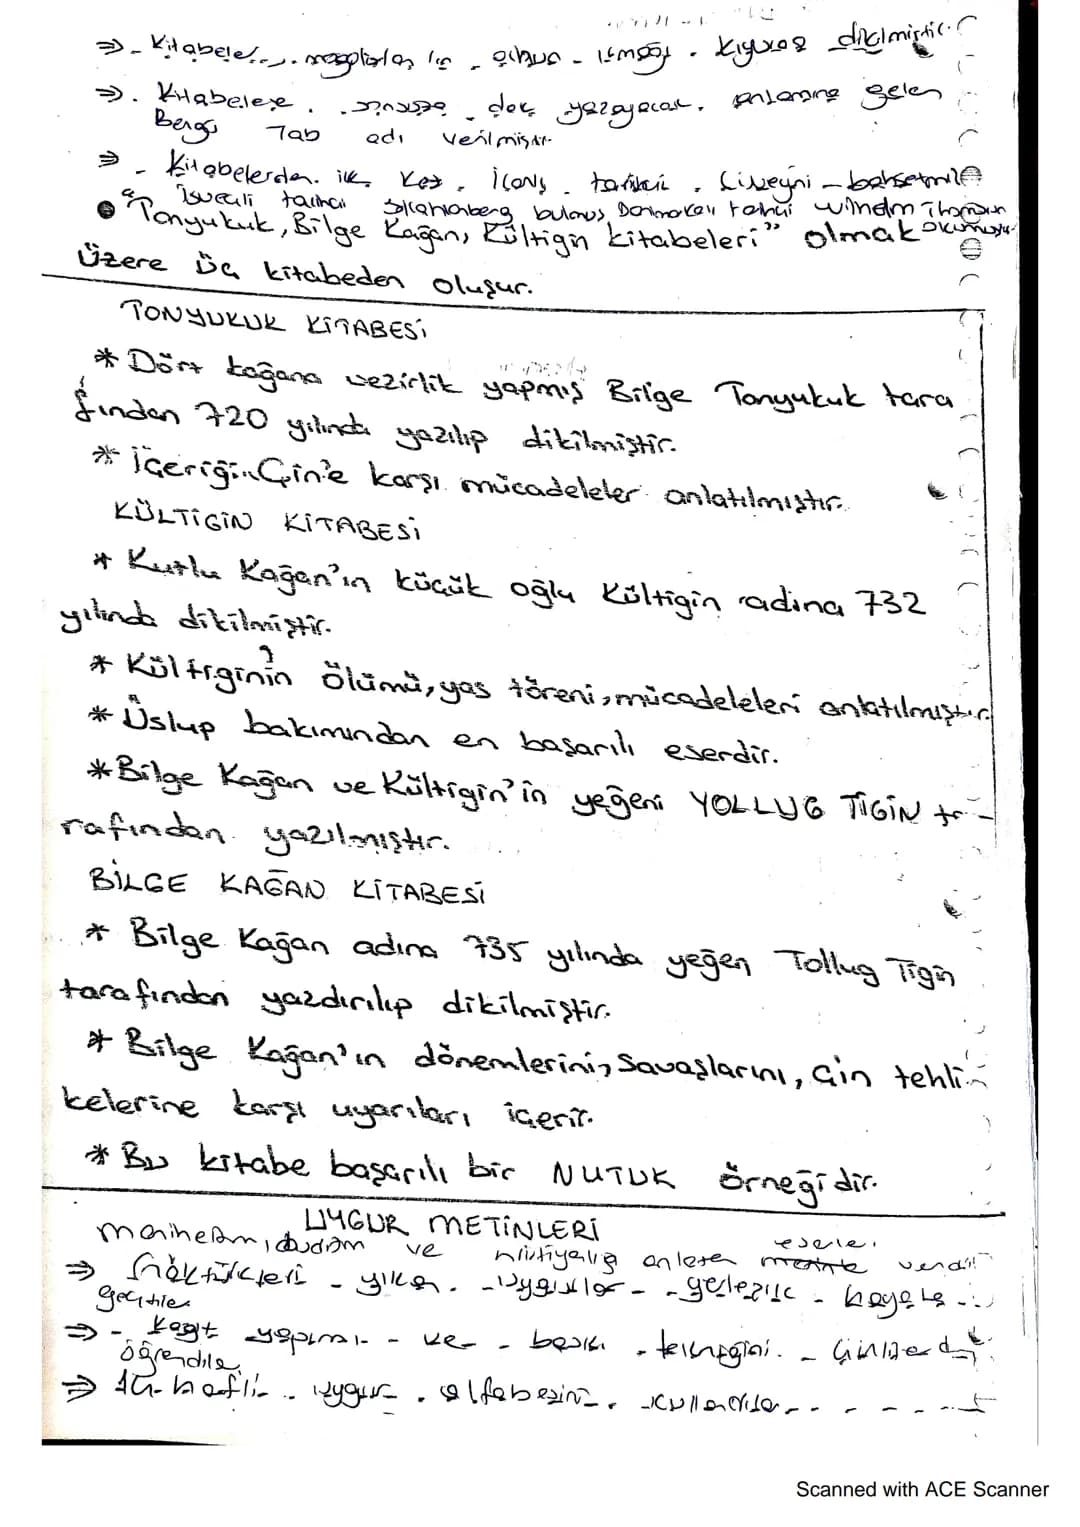 ⇒ - Kitabeler
dikilmiştir.
⇒. Kitabelere . yazayacak. anlamına gelen
Bengü Tab adı verilmiştir.
⇒ - Kitabelerden. ilk. Kez. . tarihçi . Cüveyni - bahsetmiş
İsveçli tarihçi bulmuş Danimarkalı tarihçi wilhelm Thomsen
okumuştur
● "Tonyukuk, Bilge Kağan, Kültigin kitabeleri" olmak
Üzere üç kitabeden oluşur.
TONYUKUK KİTABESİ
* Dört kağana vezirlik yapmış Bilge Tonyukuk tara
fından 720 yılında yazılıp dikilmiştir.
* İçeriği Çin'e karşı mücadeleler anlatılmıştır.
KÜLTİGİN KİTABESİ
* Kutlu Kağan'ın küçük oğlu Kültigin adına 732
yılında dikilmiştir.
* Kültigin'in ölümü, yas töreni, mücadeleleri anlatılmıştır
* Üslup bakımından en başarılı eserdir.
* Bilge Kağan ve Kültigin'in yeğeni YOLLUG TİGİN ta
rafından yazılmıştır.
BİLGE KAĞAN KİTABESİ
* Bilge Kağan adına 735 yılında yeğen Tollug Tigin
tarafından yazdırılıp dikilmiştir.
* Bilge Kağan'ın dönemlerini, Savaşlarını, Çin tehli
kelerine karşı uyarıları içerir.
* Bu kitabe başarılı bir NUTUK örneğidir.
UYGUR METİNLERİ
maniheizm, budizm ve hristiyanlığı anlatan eserler verdi
⇒ Göktürkleri - yıkan. - Uygurlar - - yerleşik - hayata
geçtiler
⇒ - Kağıt yapımı - ve - baskı . tekniğini. - Çinlilerden
öğrendiler
⇒ 14 - harfli - . uygur - . alfabesini - . kullandılar - - - - -
Scanned with ACE Scanner